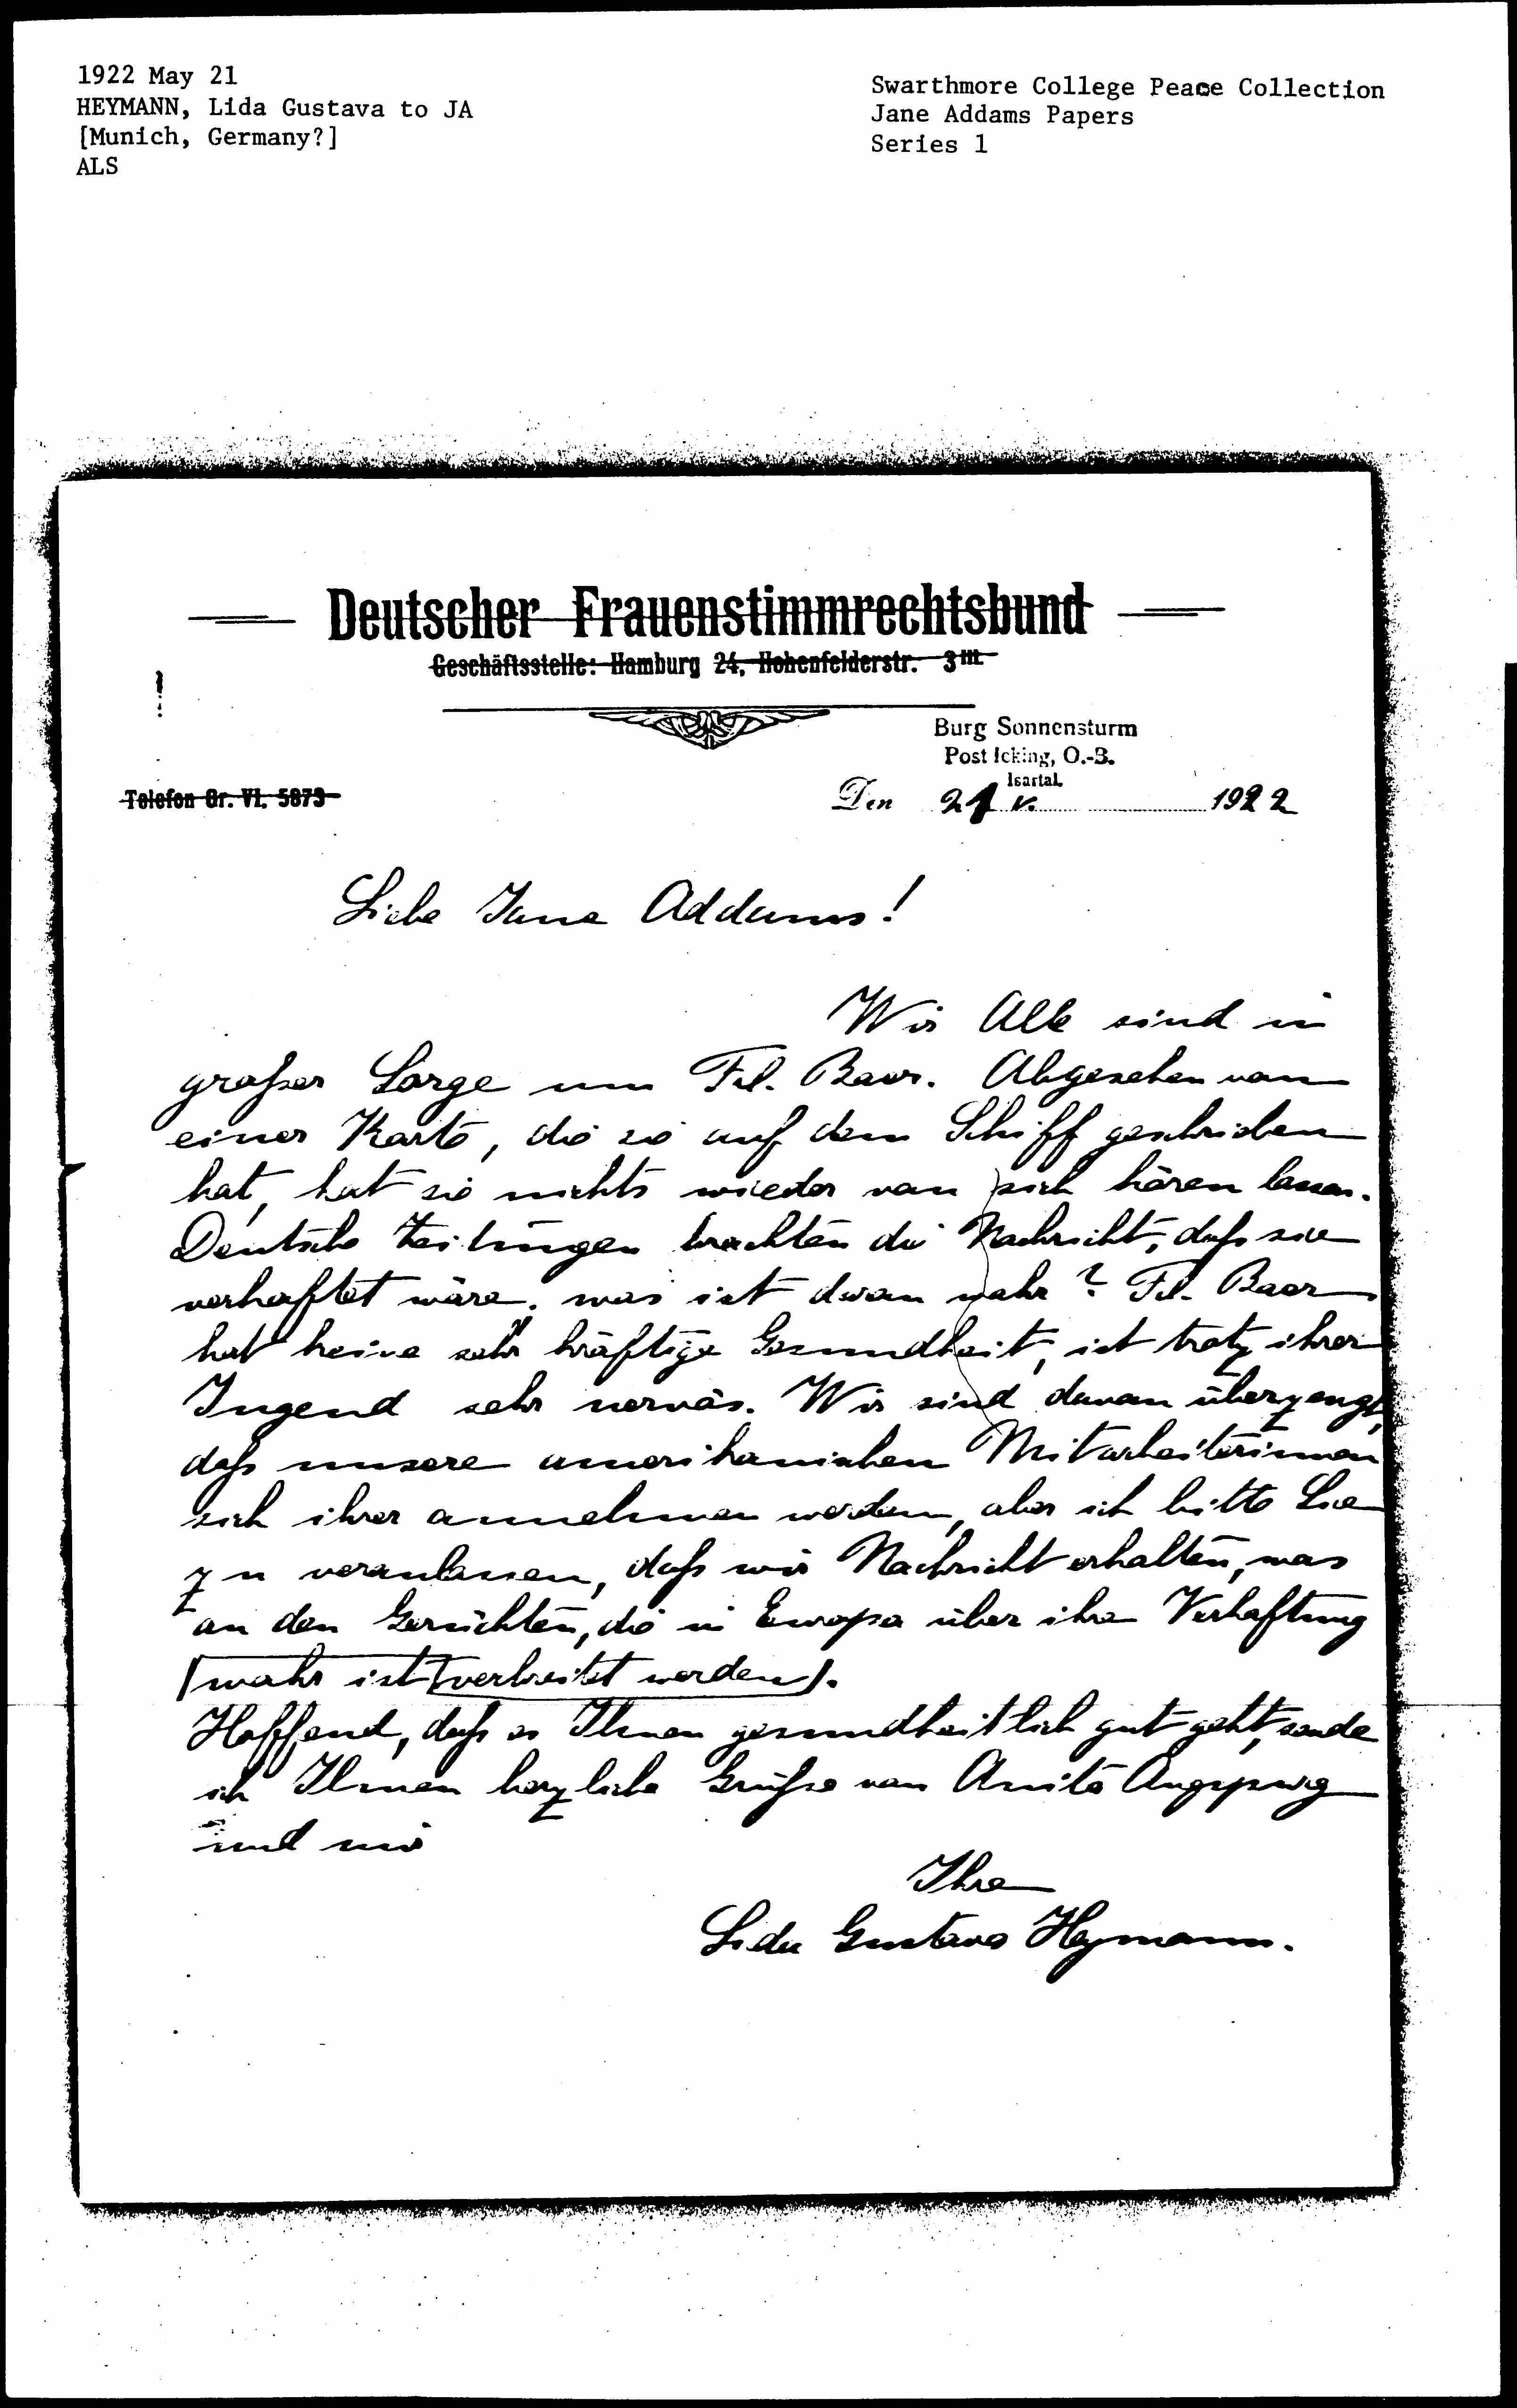 1922 May 21
HEYMANN, Lida Gustava to JA
[Munich, Germany?]
ALS
Swarthmore College Peace Collection
Jane Addams Papers
Series 1
Deutscher Frauenstimmrechtsbund
Geschäftsstelle: Hamburg 24, Hohenfelderstr. 3 III
!
Burg Sonnensturm
Post Icking, O.-B.
Isartal.
Telefon Gr. VI. 5873
Den 21 V. 1922
Liebe Jane Addams!
Wir Alle sind in
großer Sorge um Frl. Baer. Abgesehen von
einer Karte, die sie auf dem Schiff geschrieben
hat, hat sie nichts wieder von sich hören lassen.
Deutsche Zeitungen brachten die Nachricht, daß sie
verhaftet wäre. was ist davon wahr? Frl. Baer
hat keine sehr kräftige Gesundheit, ist trotz ihrer
Jugend sehr nervös. Wir sind davon überzeugt,
daß unsere amerikanischen Mitarbeiterinnen
sich ihrer annehmen werden, aber ich bitte Sie
zu veranlassen, daß wir Nachricht erhalten, was
an den Gerüchten, die in Europa über ihre Verhaftung
(wahr ist (verbreitet werden).
Hoffend, daß es Ihnen gesundheitlich gut geht, sende
ich Ihnen herzliche Grüße von Anita Augspurg
und mir
Ihre
Lida Gustava Heymann.